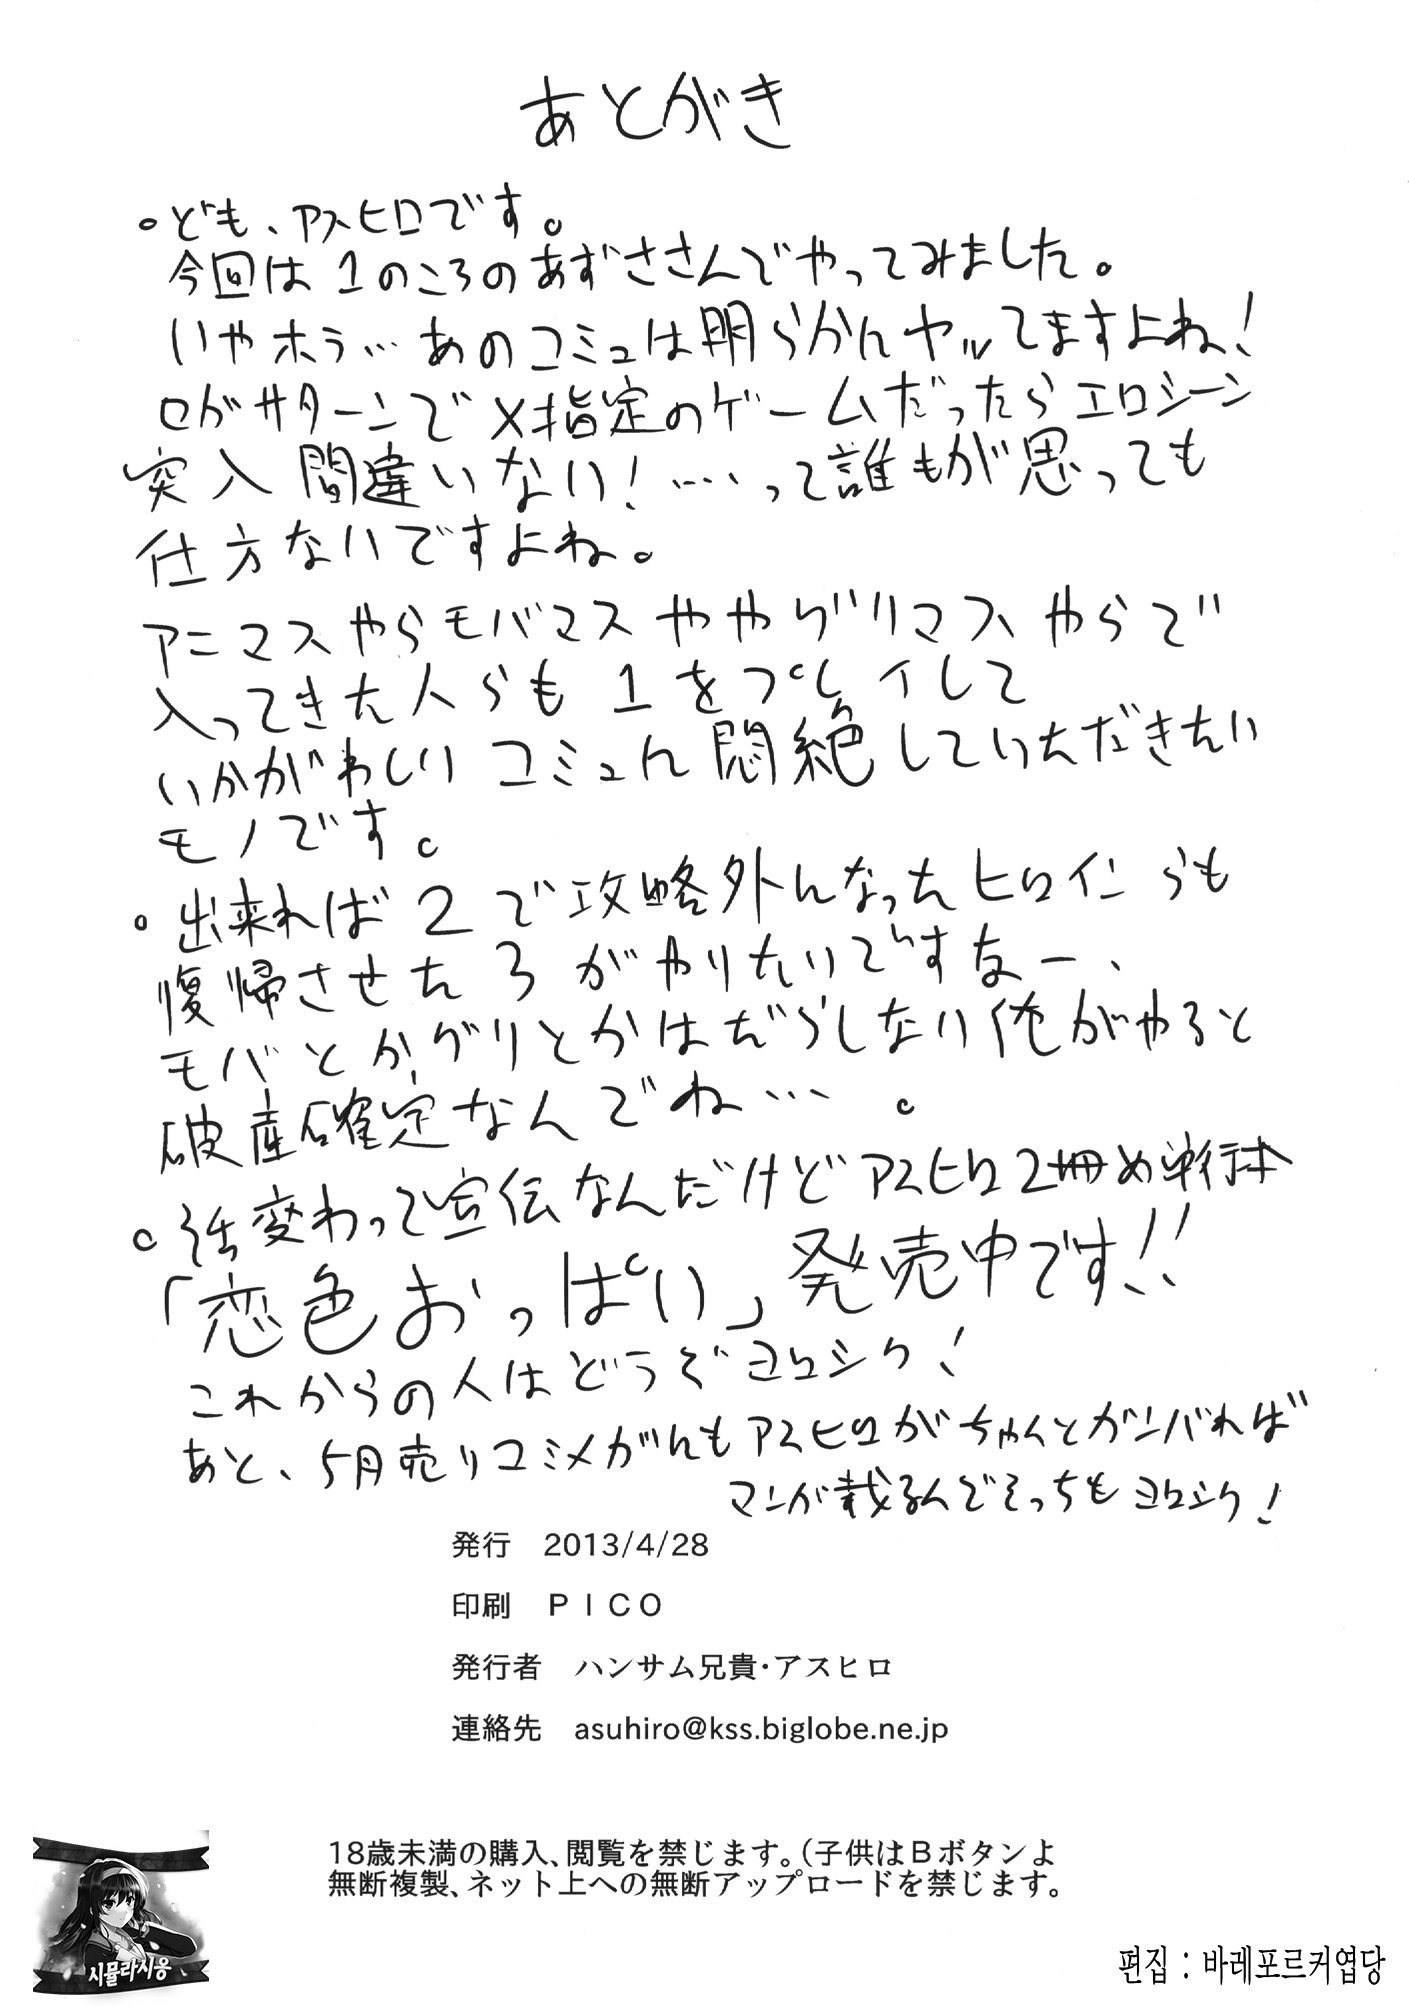 あとがき
。ども、アスヒロです。
今回は1のころのあずささんでやってみました。
いやホラ…あのコミュは明らかにヤルてますよね!
セガサターンでX指定のゲームだったらエロシーン
突入間違いない!…って誰もが思っても
仕方ないですよね。
アニマスやらモバマスややグリマスやらで
入ってきた人らも1をプレイして
いかがわしいコミュに悶絶していただきたい
モノです。
。出来れば2で攻略外になったヒロインらも
復帰させた3がやりたいですなー、
モバとか、グリとかはだらしない俺がやると
破産確定なんでね…。
。話変わって宣伝なんだけどアスヒロ2冊め単行本
「恋色おっぱい」発売中です!!
これからの人はどうぞヨロシク!
あと、5月売りコミメガにもアスヒロがちゃんとガンバれば
マンガ載るんでそっちもヨロシク!
発行 2013/4/28
印刷 PICO
発行者 ハンサム兄貴・アスヒロ
連絡先 asuhiro@kss.biglobe.ne.jp
18歳未満の購入、閲覧を禁じます。(子供はBボタンよ
無断複製、ネット上への無断アップロードを禁じます。
시뮬라시옹
편집 : 바레포르커엽당